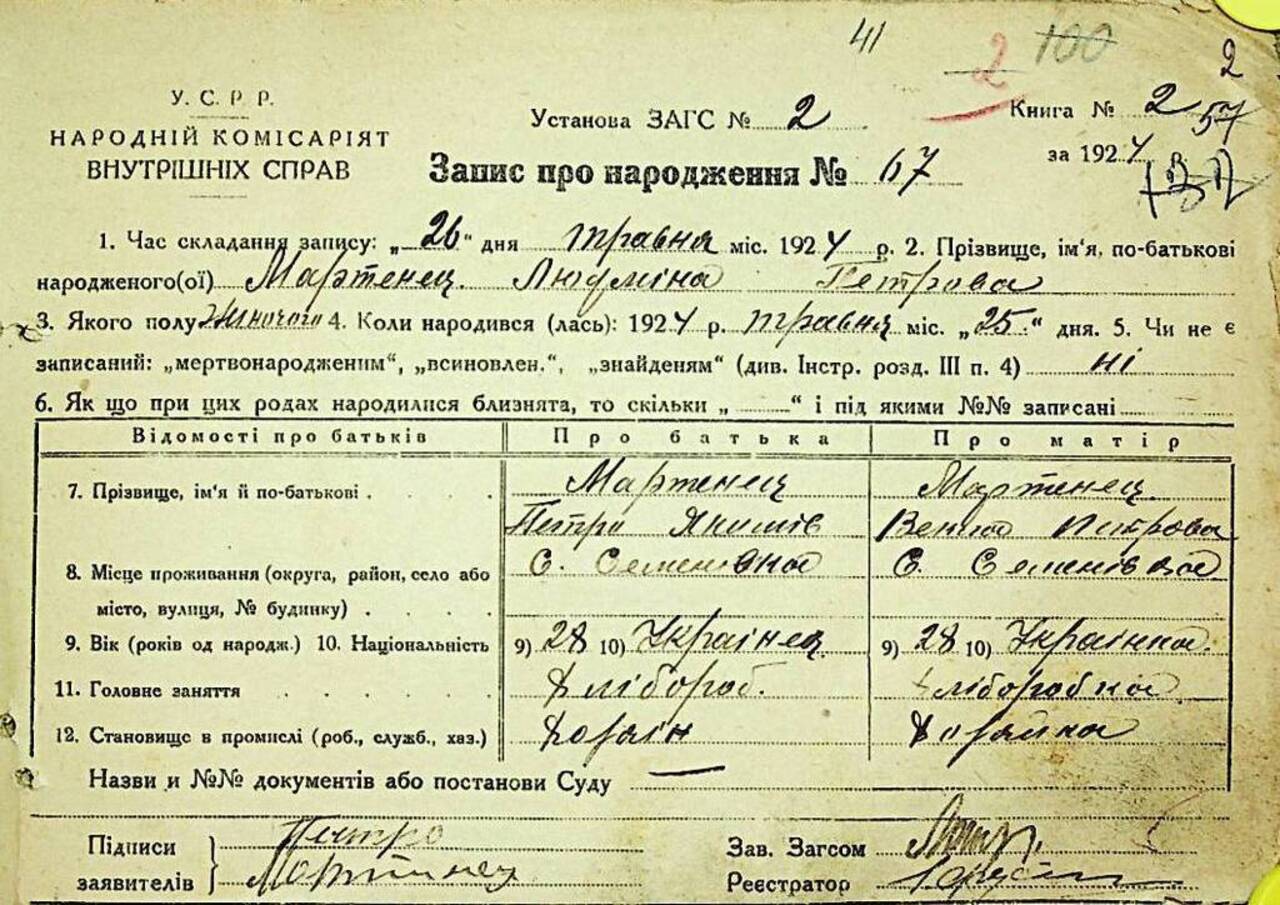 41 2 100 2
У. С. Р. Р.
НАРОДНІЙ КОМІСАРІЯТ
ВНУТРІШНІХ СПРАВ
Установа ЗАГС № 2
Книга № 2 57
за 1924
Запис про народження № 67
1. Час складання запису: „26“ дня травня міс. 1924 р. 2. Прізвище, ім'я, по-батькові
народженого(ої) Мартенец Людміна Петрова
3. Якого полу жіночого 4. Коли народився (лась): 1924 р. травня міс. „25.“ дня. 5. Чи не є
записаний: „мертвонародженим“, „всиновлен.“, „знайденям“ (див. Інстр. розд. III п. 4) ні
6. Як що при цих родах народилися близнята, то скільки „ “ і під якими №№ записані
Відомості про батьків Про батька Про матір
7. Прізвище, ім'я й по-батькові Мартенец Мартенец
Петро Якимів Петрова
8. Місце проживання (округа, район, село або С. Семенівка С. Семенівка
місто, вулиця, № будинку)
9. Вік (років од народж.) 10. Національність 9) 28 10) Українец 9) 28 10) Українка
11. Головне заняття Хлібороб. Хліборобка
12. Становище в промислі (роб., служб., хаз.) Хозяін Хозяйка
Назви и №№ документів або постанови Суду —
Підписи
заявителів
Петро
Мартинец
Зав. Загсом
Реєстратор